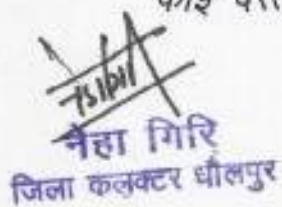 नेहा गिरि
जिला कलक्टर धौलपुर